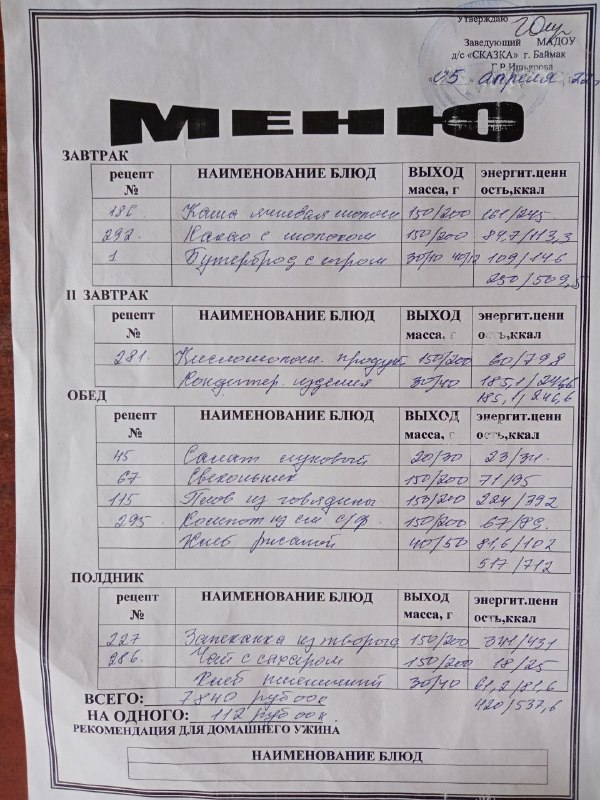 Утверждаю
Заведующий МАДОУ
д/с «СКАЗКА» г. Баймак
«05 апреля 22г
МЕНЮ
ЗАВТРАК
рецепт № НАИМЕНОВАНИЕ БЛЮД ВЫХОД масса, г энергит.ценн ость,ккал
186. Каша ячневая молочн 150/200 161/245
292. Какао с молоком 150/200 84,7/113,3
1 Бутерброд с сыром 30/10 40/12 109/146
509,5
II ЗАВТРАК
рецепт № НАИМЕНОВАНИЕ БЛЮД ВЫХОД масса, г энергит.ценн ость,ккал
281. Кисломолочн. продукт 150/200 60/79,8
Кондитер. изделия 30/40 185,1/246,6
185,1/246,6
ОБЕД
рецепт № НАИМЕНОВАНИЕ БЛЮД ВЫХОД масса, г энергит.ценн ость,ккал
45 Салат луковый 20/30 23/34.
67 Свекольник 150/200 71/95
115 Плов из говядины 150/200 224/392
295. Компот из см с/ф. 150/200 67/89.
Хлеб ржаной 40/50 81,6/102
517/712
ПОЛДНИК
рецепт № НАИМЕНОВАНИЕ БЛЮД ВЫХОД масса, г энергит.ценн ость,ккал
227. Запеканка из творога 150/200 341/431
286. Чай с сахаром 150/200 18/25
Хлеб пшеничный 30/40 61,2/81,6
ВСЕГО: 7840 руб 00к 420/537,6
НА ОДНОГО: 112 руб 00к.
РЕКОМЕНДАЦИЯ ДЛЯ ДОМАШНЕГО УЖИНА
НАИМЕНОВАНИЕ БЛЮД